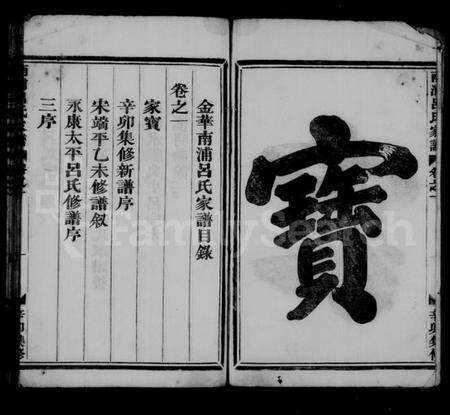 寶
南浦呂氏家譜 卷之一
辛卯集修
金華南浦呂氏家譜目錄
卷之一
家寶
辛卯集修新譜序
宋端平乙未修譜敘
永康太平呂氏修譜序
三序
FamilySearch